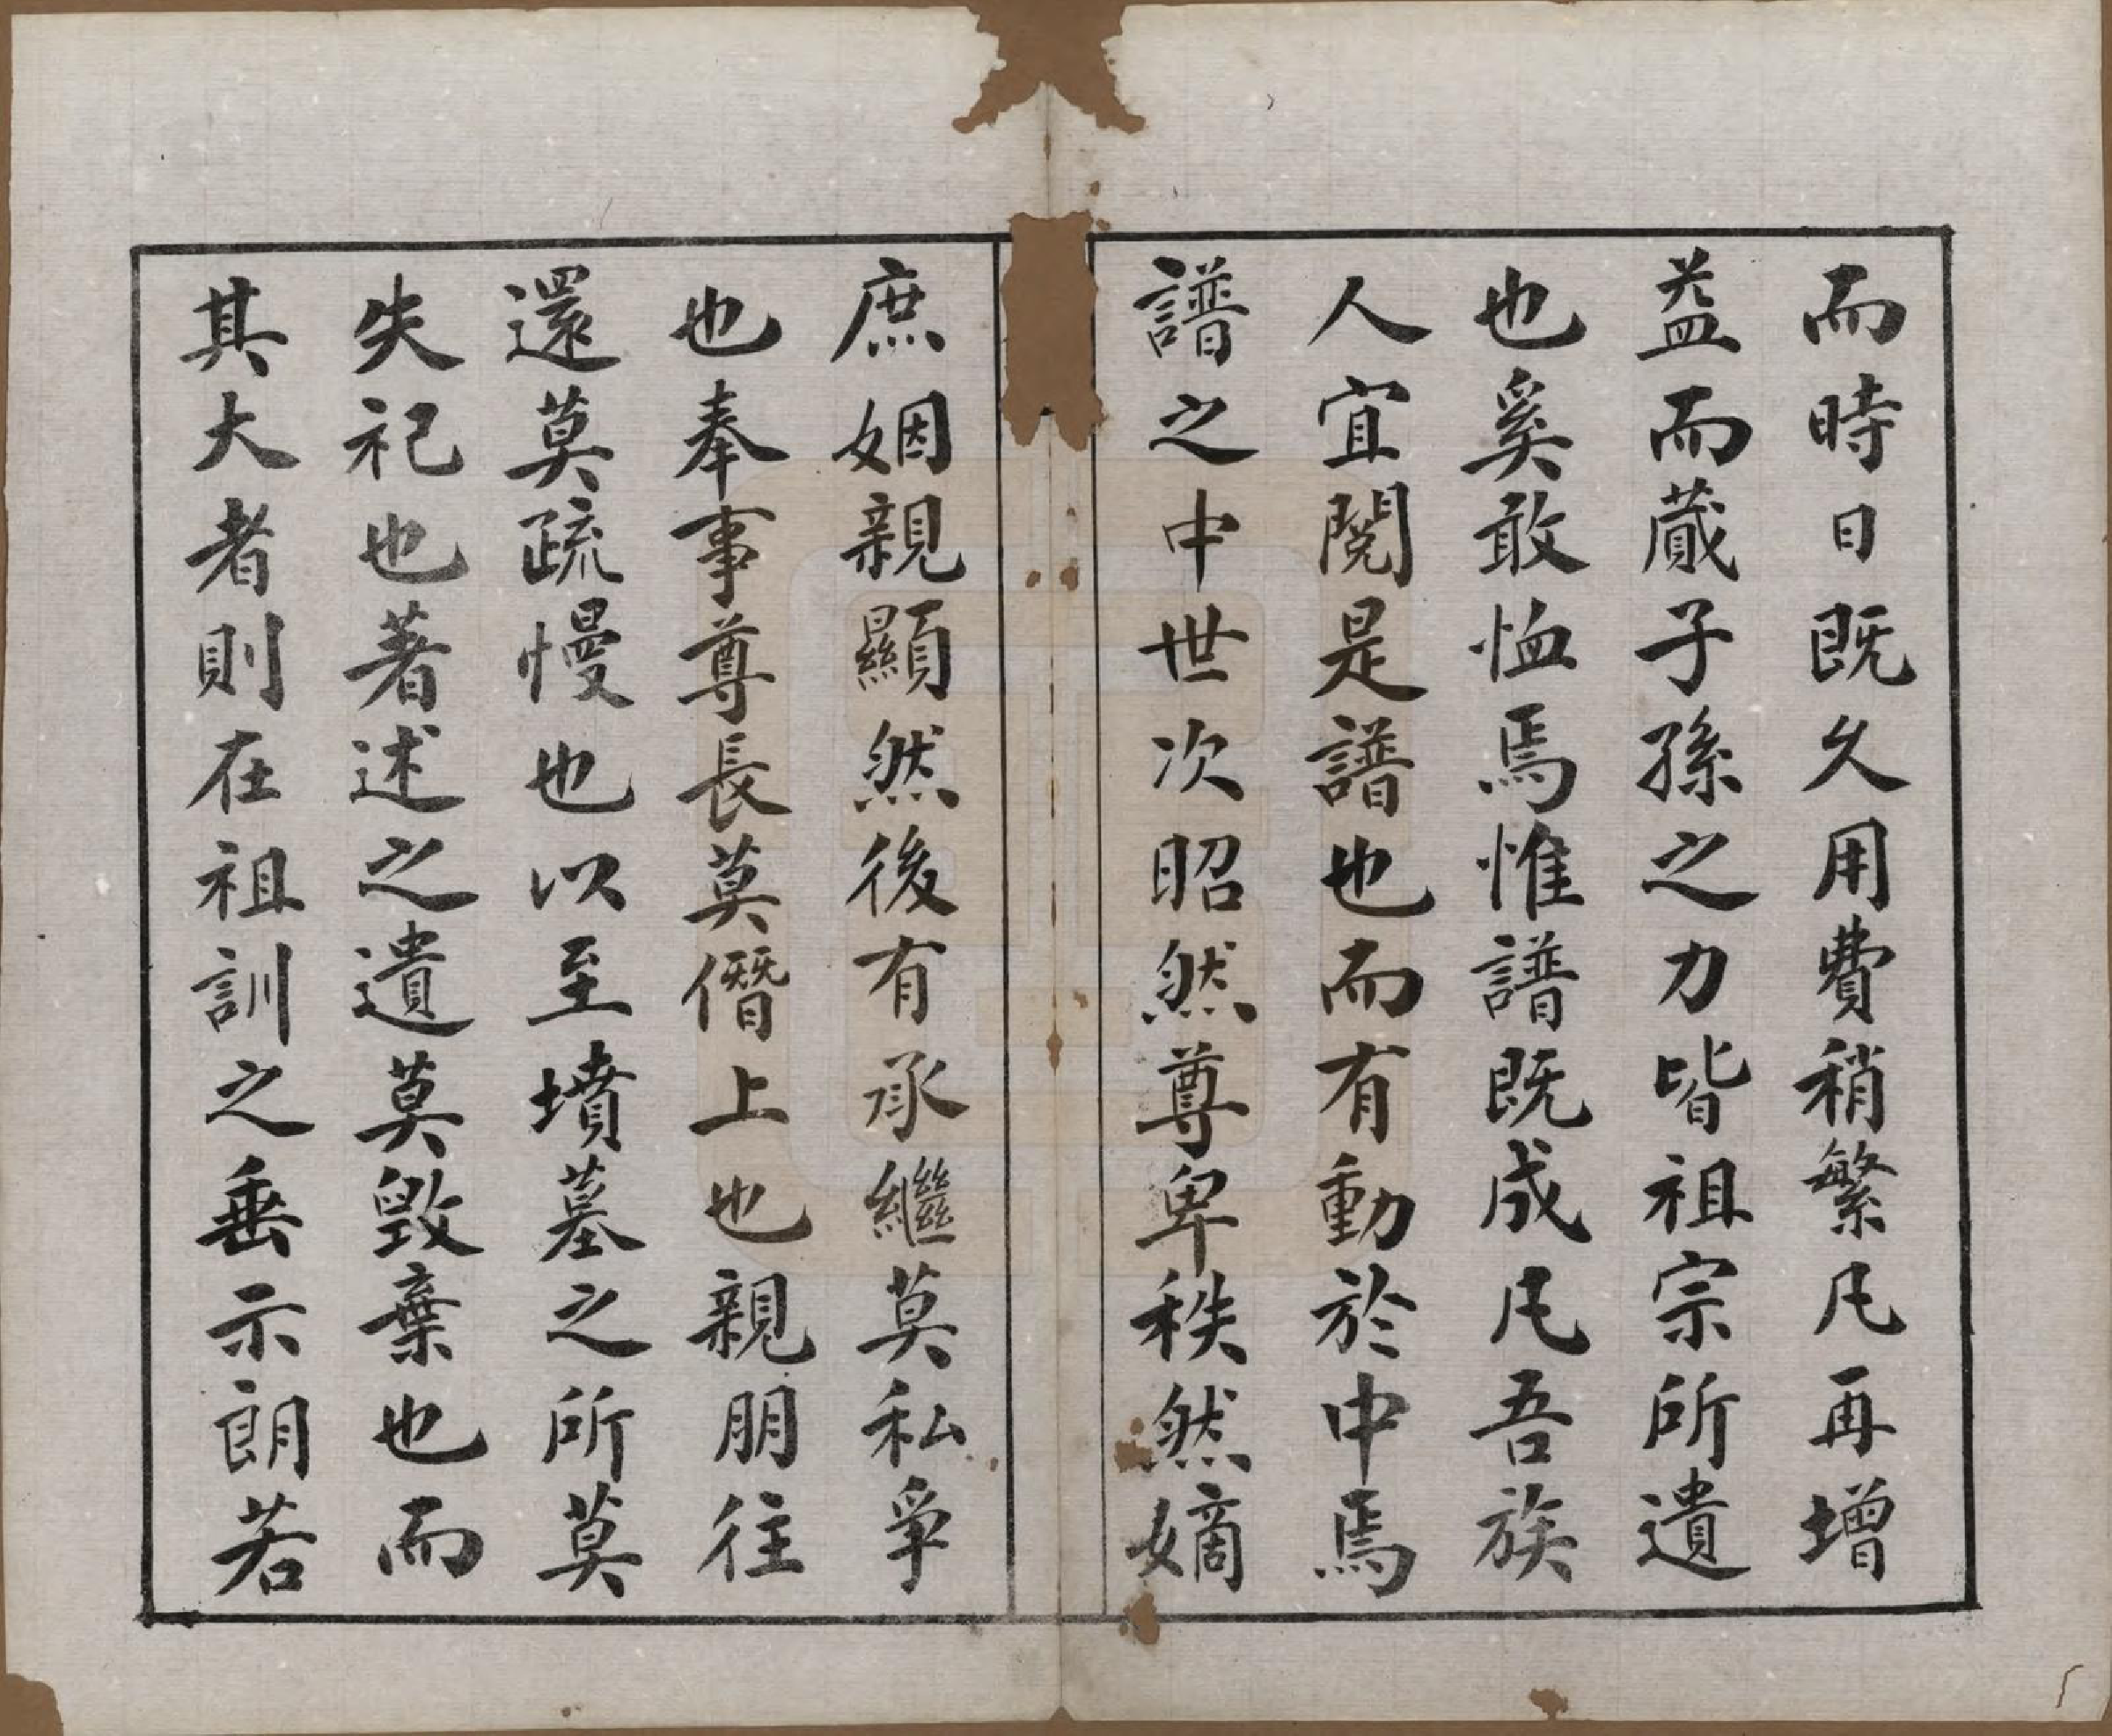 而時日既久用費稍繁凡再增
益而蕆子孫之力皆祖宗所遺
也奚敢恤焉惟譜既成凡吾族
人宜閱是譜也而有動於中焉
譜之中世次昭然尊卑秩然嫡
庶姻親顯然後有承繼莫私爭
也奉事尊長莫僭上也親朋往
還莫疏慢也以至墳墓之所莫
失祀也著述之遺莫毀棄也而
其大者則在祖訓之垂示朗若